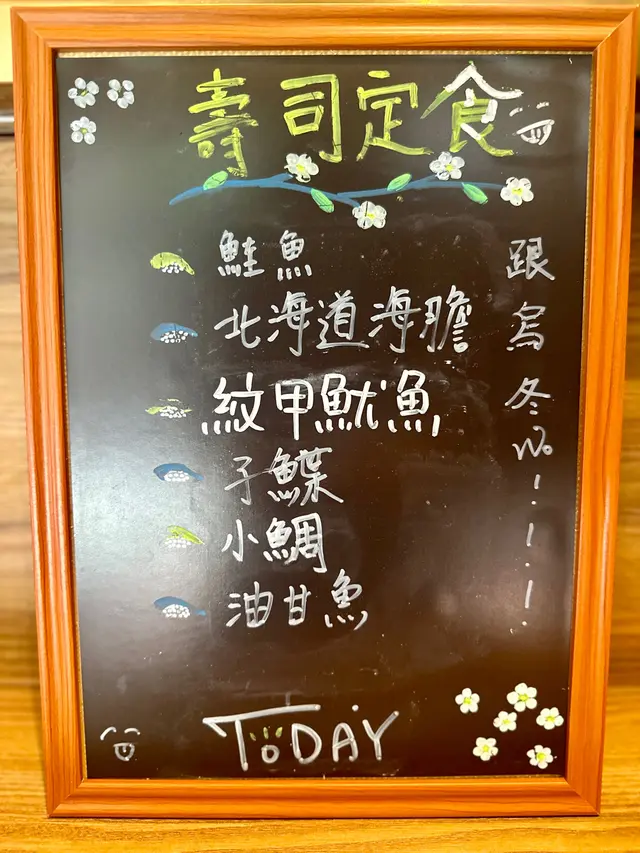 壽司定食
鮭魚
北海道海膽
紋甲魷魚
子鰈
小鯛
油甘魚
跟烏冬No!!!
TODAY